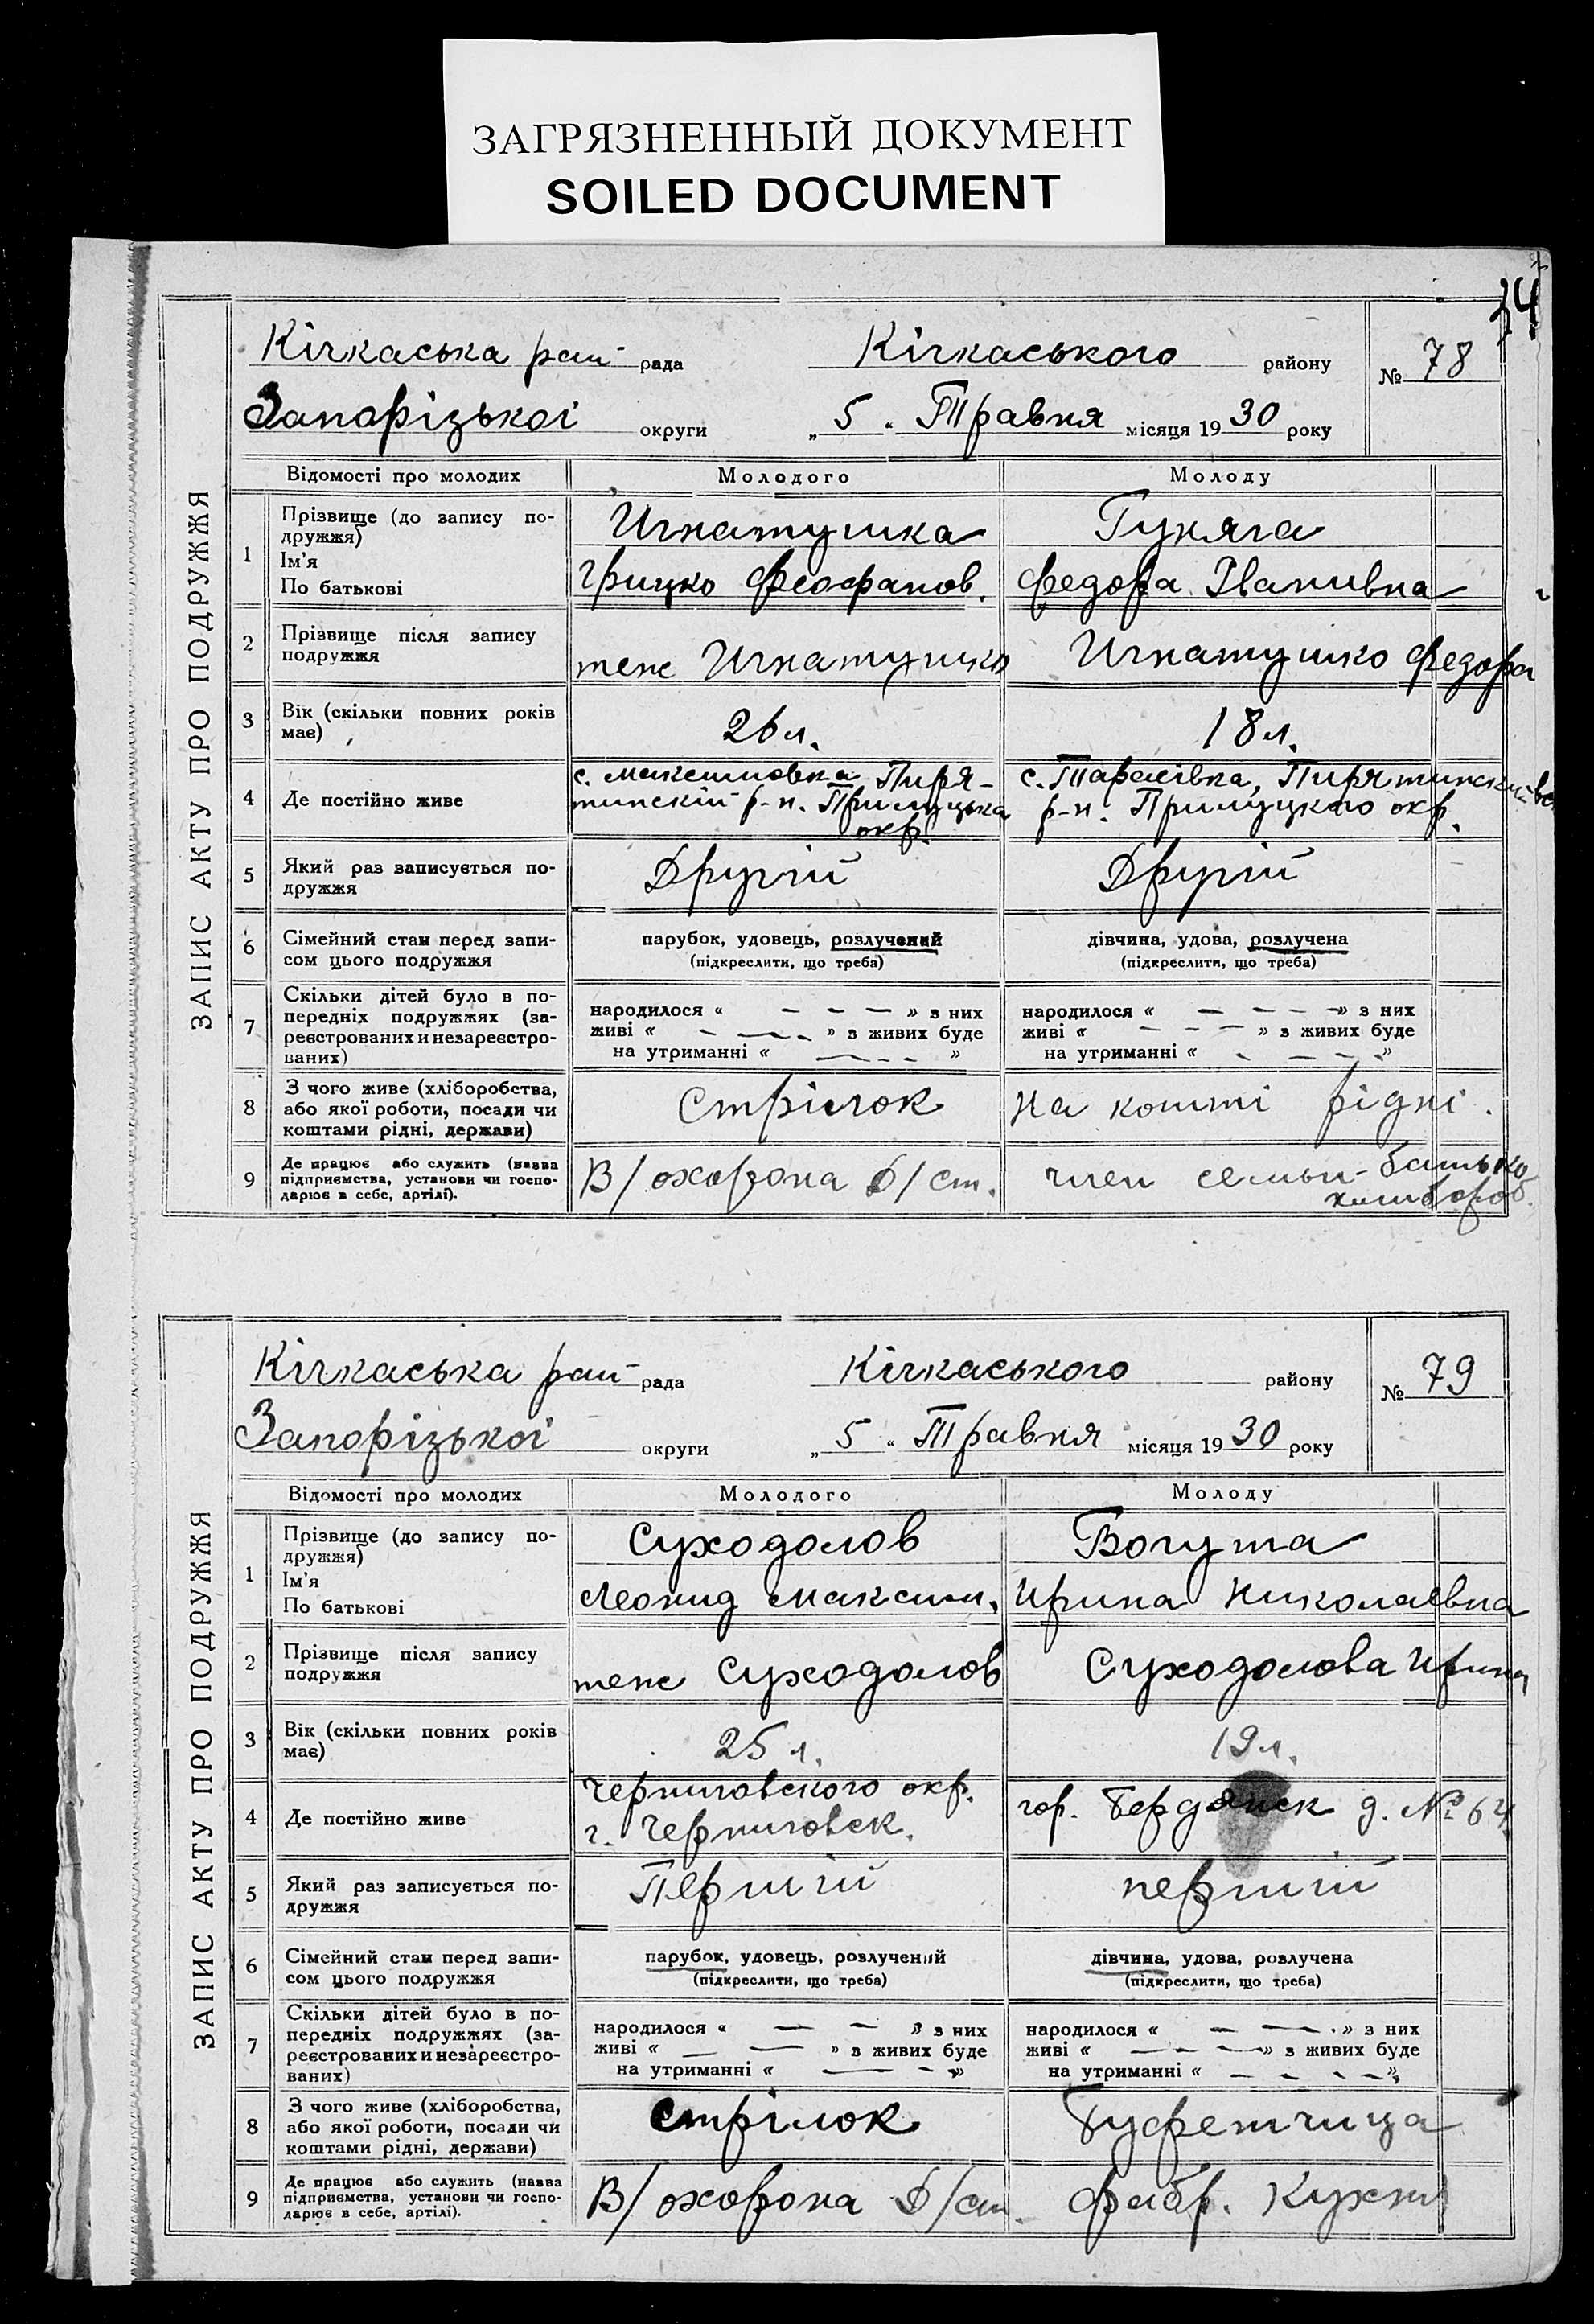 ЗАГРЯЗНЕННЫЙ ДОКУМЕНТ
SOILED DOCUMENT
ЗАПИС АКТУ ПРО ПОДРУЖЖЯ
Кічкаська рай рада Кічкаського району № 78
Запорізької округи „ 5 “ Травня місяця 1930 року
Відомості про молодих Молодого Молоду
1 Прізвище (до запису по-
дружжя)
Ім'я
По батькові
Игнатушка
Грицко Феофанов.
Гуняга
Федора Іванивна
2 Прізвище після запису
подружжя
теж Игнатушко
Игнатушко Федора
3 Вік (скільки повних років
має)
26 л.
18 л.
4 Де постійно живе
с. Максимовка Пиря-
тинскій р-н. Прилуцька
окр.
с. Тарасівка, Пирятинский
р-н. Прилуцкого окр.
5 Який раз записується по-
дружжя
Другій
Другій
6 Сімейний стан перед запи-
сом цього подружжя
парубок, удовець, розлучений
(підкреслити, що треба)
дівчина, удова, розлучена
(підкреслити, що треба)
7 Скільки дітей було в по-
передніх подружжях (за-
реєстрованих и незареєстро-
ваних)
народилося « — — — » з них
живі « — — — » з живих буде
на утриманні « — — — »
народилося « — — — » з них
живі « — — — » з живих буде
на утриманні « — — — »
8 З чого живе (хліборобства,
або якої роботи, посади чи
коштами рідні, держави)
Стрілок
На кошті рідні.
9 Де працює або служить (назва
підприємства, установи чи госпо-
дарює в себе, артілі).
В/охорона Д/ст.
член семьи - батько
хлибороб.
ЗАПИС АКТУ ПРО ПОДРУЖЖЯ
Кічкаська рай рада Кічкаського району № 79
Запорізької округи „ 5 “ Травня місяця 1930 року
Відомості про молодих Молодого Молоду
1 Прізвище (до запису по-
дружжя)
Ім'я
По батькові
Суходолов
Леонид Максим.
Богута
Ирина Николаевна
2 Прізвище після запису
подружжя
теж Суходолов
Суходолова Ирина
3 Вік (скільки повних років
має)
25 л.
19 л.
4 Де постійно живе
Черниговского окр.
г. Черниговск.
гор. Бердянск д. № 64.
5 Який раз записується по-
дружжя
Перший
перший
6 Сімейний стан перед запи-
сом цього подружжя
парубок, удовець, розлучений
(підкреслити, що треба)
дівчина, удова, розлучена
(підкреслити, що треба)
7 Скільки дітей було в по-
передніх подружжях (за-
реєстрованих и незареєстро-
ваних)
народилося « — — » з них
живі « — — » з живих буде
на утриманні « — — »
народилося « — — » з них
живі « — — — » з живих буде
на утриманні « — — — »
8 З чого живе (хліборобства,
або якої роботи, посади чи
коштами рідні, держави)
Стрілок
Буфетчица
9 Де працює або служить (назва
підприємства, установи чи госпо-
дарює в себе, артілі).
В/охорона Д/ст.
фабр. Кухни